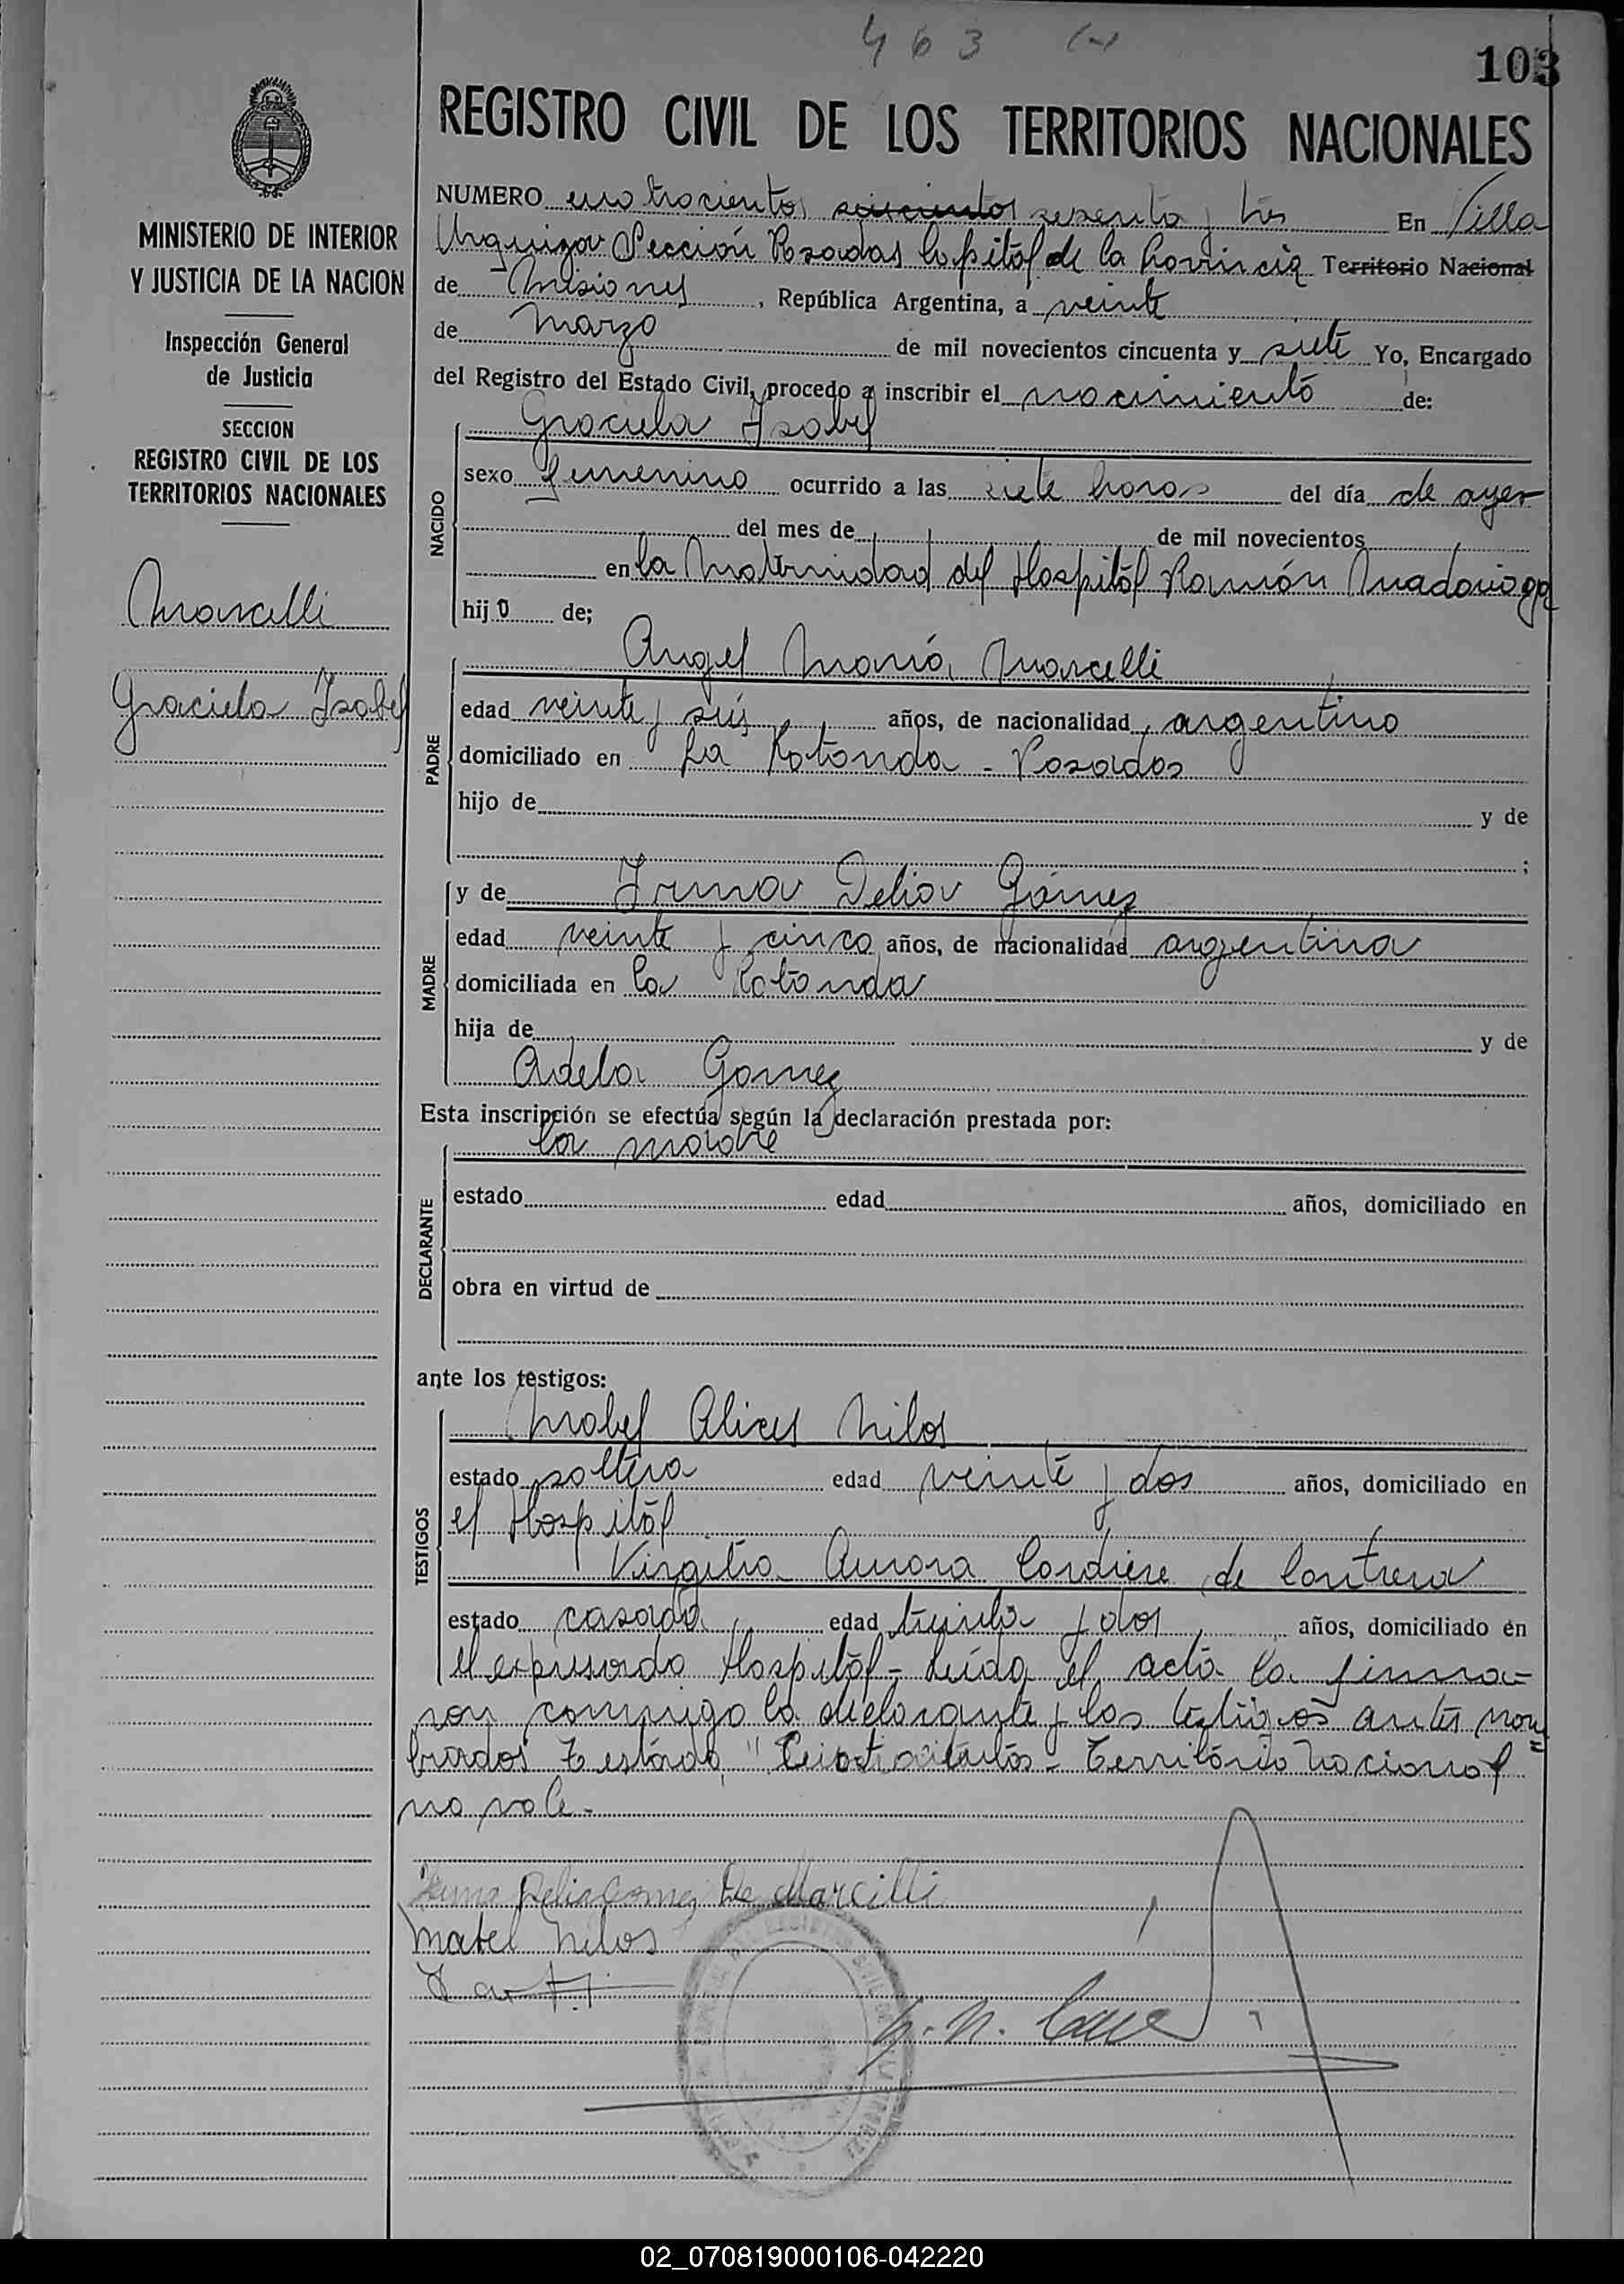 463 (-)
103
REGISTRO CIVIL DE LOS TERRITORIOS NACIONALES
MINISTERIO DE INTERIOR
Y JUSTICIA DE LA NACION
Inspección General
de Justicia
SECCION
REGISTRO CIVIL DE LOS
TERRITORIOS NACIONALES
Marcelli
Graciela Isabel
NUMERO cuatrocientos seiscientos sesenta y tres En Villa
Urquiza Sección Posadas Capital de la Provincia Territorio Nacional
de Misiones, República Argentina, a veinte
de marzo de mil novecientos cincuenta y siete Yo, Encargado
del Registro del Estado Civil, procedo a inscribir el nacimiento de:
NACIDO
Graciela Isabel
sexo femenino ocurrido a las siete horas del día de ayer
del mes de de mil novecientos
en la Maternidad del Hospital Ramón Madariaga
hija de;
PADRE
Angel María Marcelli
edad veinte y seis años, de nacionalidad argentino
domiciliado en La Rotonda - Posadas
hijo de y de
;
MADRE
y de Irma Delia Gómez
edad veinte y cinco años, de nacionalidad argentina
domiciliada en la Rotonda
hija de y de
Adela Gomez
Esta inscripción se efectúa según la declaración prestada por:
DECLARANTE
la madre
estado edad años, domiciliado en
obra en virtud de
ante los testigos:
TESTIGOS
Mabel Alices Milos
estado soltera edad veinte y dos años, domiciliado en
el Hospital
Aurora de
estado casada edad treinta y dos años, domiciliado en
el expresado Hospital - Leída el acta la firma=
ron conmigo la declarante y los testigos antes nom=
brados Testado " - Territorio Nacional
no vale -
Irma Delia Gomez De Marcelli
Mabel Milos
02_070819000106-042220